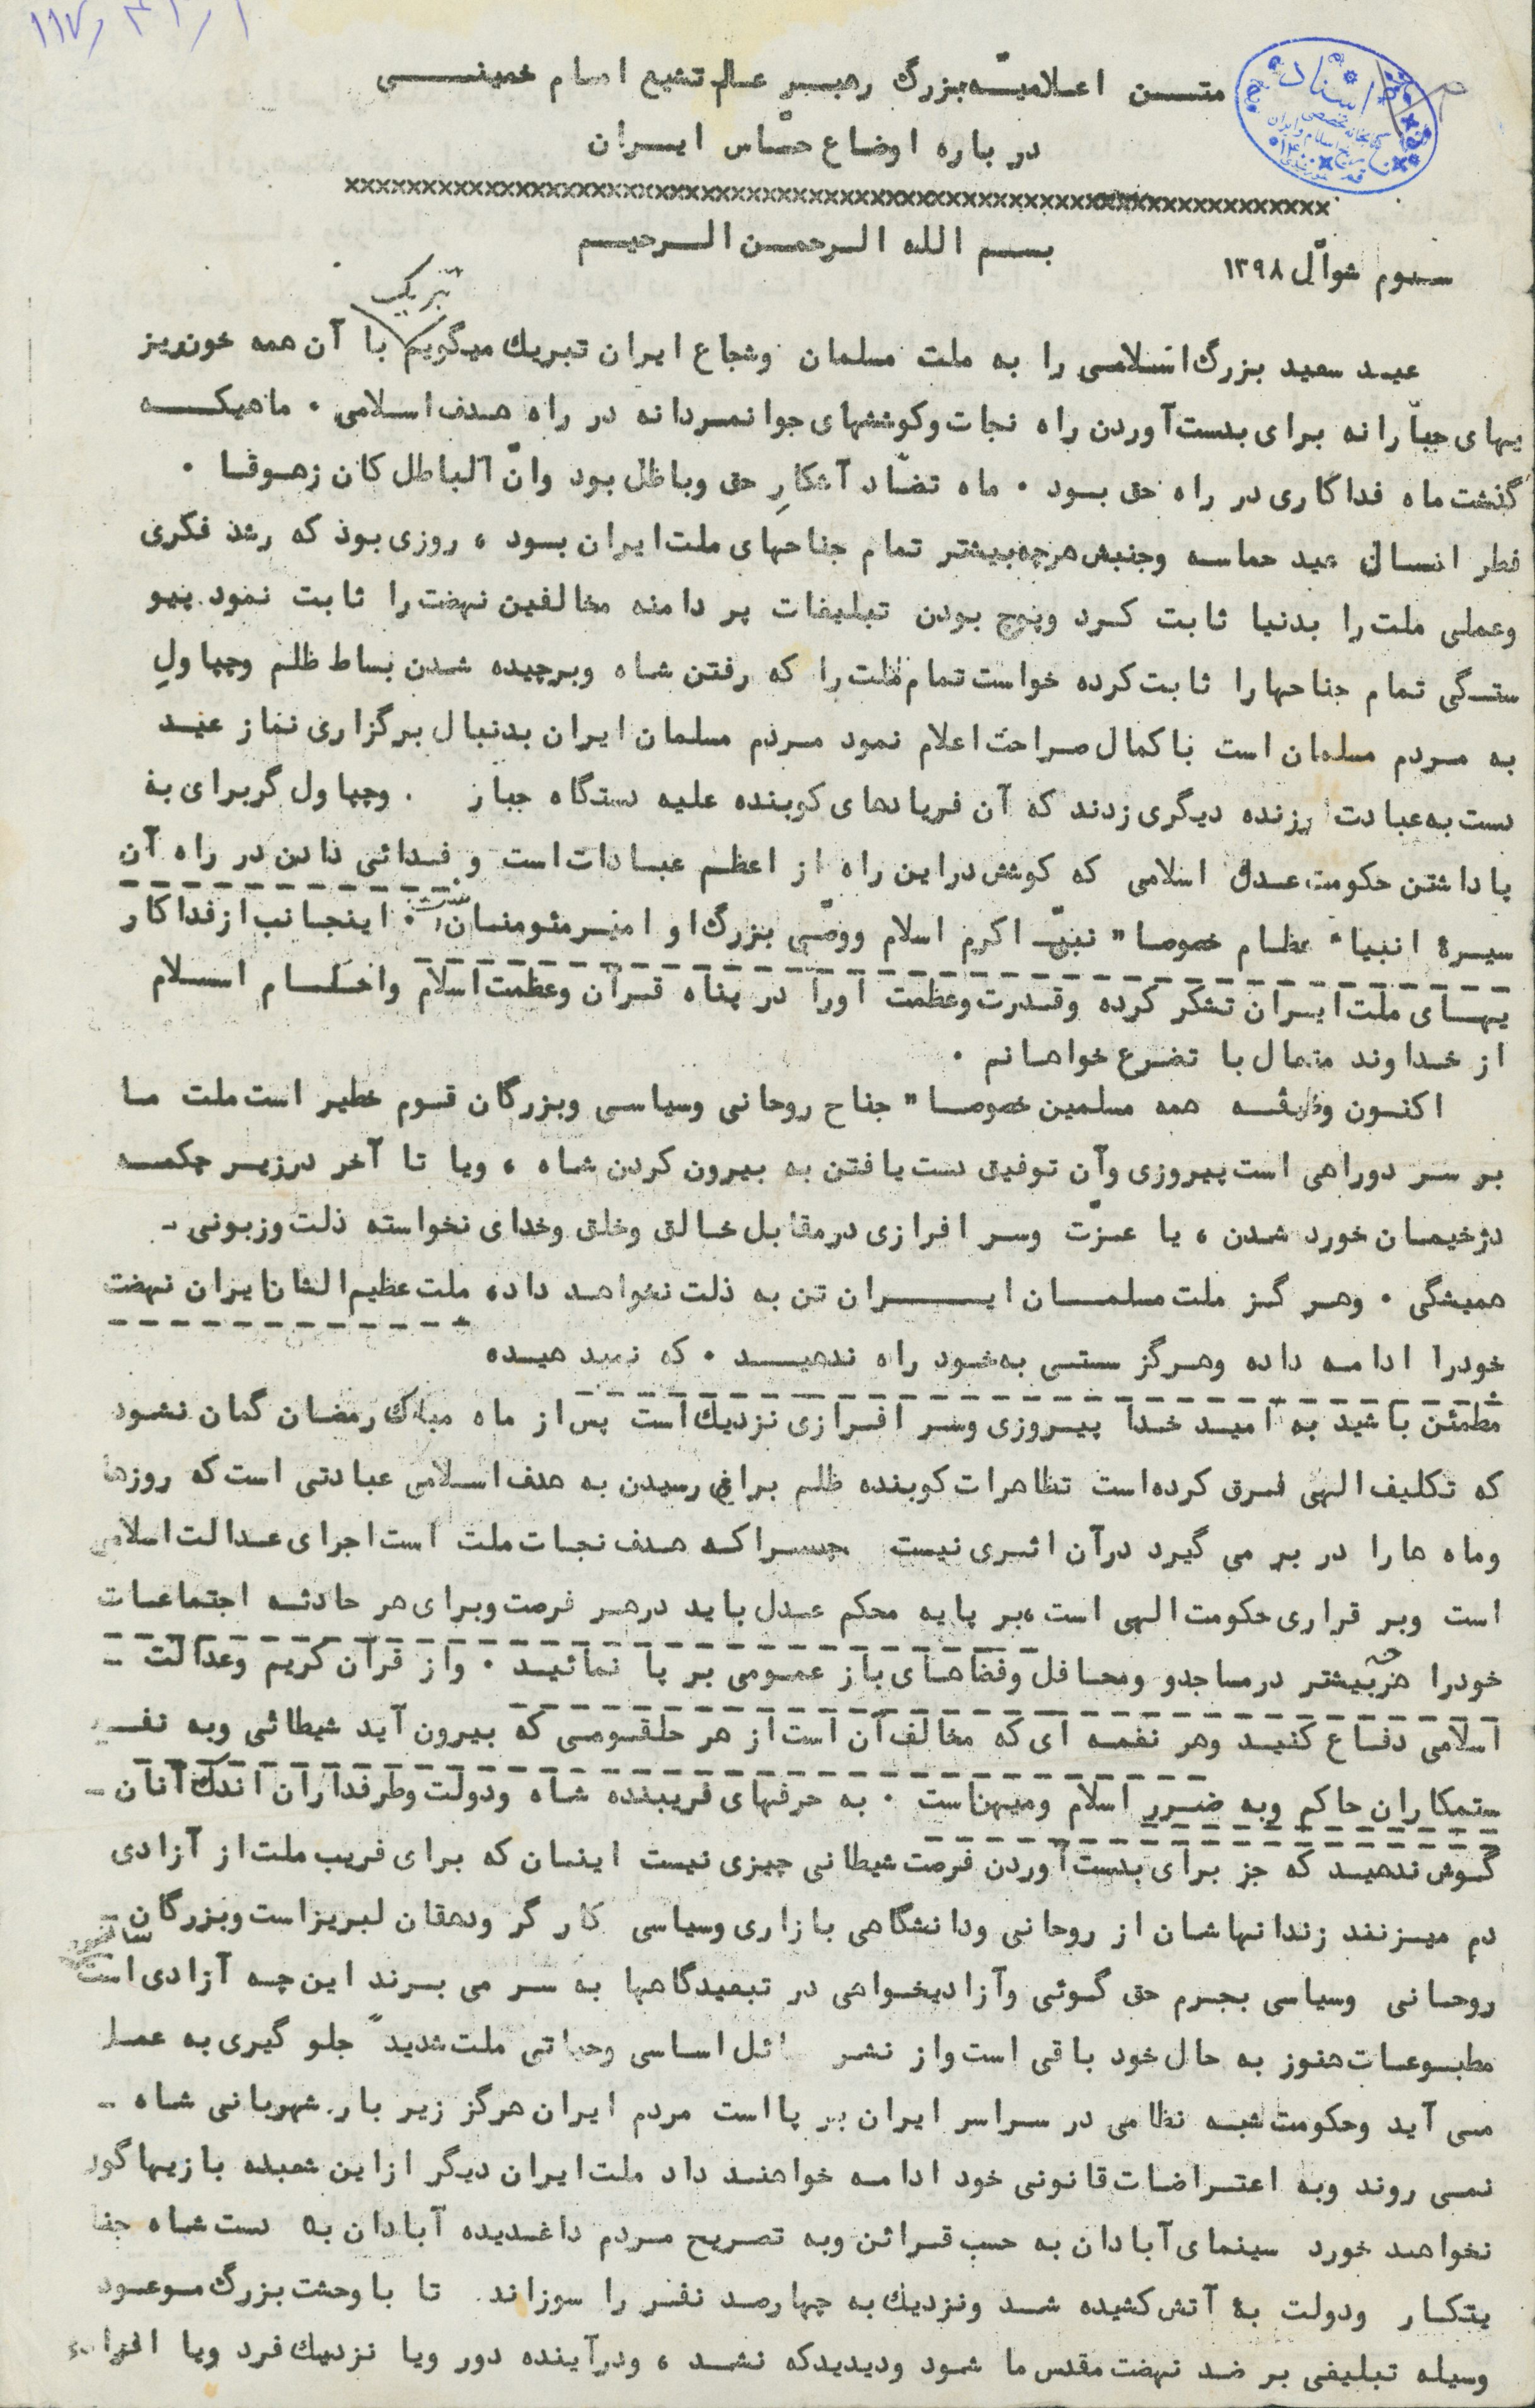 ۱۱۷٫۳۱/۱
متن اعلامیّه بزرگ رهبر عالم تشیع امام خمینی
اسناد
در باره اوضاع حسّاس ایران
xxxxxxxxxxxxxxxxxxxxxxxxxxxxxxxxxxxxxxxxxxxxxxxxxxxxxxxxxxxxxxxx
بسم الله الرحمن الرحیم
سوم شوّال ۱۳۹۸
تبریک
عید سعید بزرگ اسلامی را به ملت مسلمان وشجاع ایران تبریک میگویم با آن همه خونریز
یهای جبّارانه برای بدست آوردن راه نجات وکوششهای جوانمردانه در راه هدف اسلامی . ماهیکه
گذشت ماه فداکاری در راه حق بود . ماه تضّاد آشکارِ حق وباطل بود وانّ الباطل کان زهوقا .
فطر امسال عید حماسه وجنبش هرچه بیشتر تمام جناحهای ملت ایران بود ، روزی بود که رشد فکری
وعملی ملت را بدنیا ثابت کرد وپوچ بودن تبلیغات پر دامنه مخالفین نهضت را ثابت نمود پیو
ستگی تمام جناحها را ثابت کرده خواست تمام ملت را که رفتن شاه وبرچیده شدن بساط ظلم وچپاولِ
به مردم مسلمان است باکمال صراحت اعلام نمود مردم مسلمان ایران بدنبال برگزاری نماز عید
دست به عبادت ارزنده دیگری زدند که آن فریادهای کوبنده علیه دستگاه جبار . وچپاول گر برای به
پا داشتن حکومت عدل اسلامی که کوشش دراین راه از اعظم عبادات است و فدائی دادن در راه آن
سیرهٔ انبیاء عظام خصوصا" نبیّ اکرم اسلام ووصّی بزرگ او امیر مئومنان . اینجانب ازفداکار
یهای ملت ایران تشکر کرده وقدرت وعظمت اورا در پناه قرآن وعظمت اسلام واحکام اسلام
از خداوند متعال با تضرع خواهانم .
اکنون وظیفه همه مسلمین خصوصا" جناح روحانی وسیاسی وبزرگان قوم خطیر است ملت ما
بر سر دوراهی است پیروزی وآن توفیق دست یافتن به بیرون کردن شاه ، ویا تا آخر درزیر چکمه
دژخیمان خورد شدن ، یا عزّت وسر افرازی درمقابل خالق وخلق وخدای نخواسته ذلت وزبونی -
همیشگی . وهر گز ملت مسلمان ایران تن به ذلت نخواهد داد، ملت عظیم الشان ایران نهضت
خودرا ادامه داده وهرگز سستی به خود راه ندهید . که نمید هید،
مطمئن باشید به امید خدا پیروزی وسر افرازی نزدیک است پس از ماه مبارک رمضان گمان نشود
که تکلیف الهی فرق کرده است تظاهرات کوبنده ظلم برای رسیدن به هدف اسلامی عبادتی است که روزها
وماه ها را در بر می گیرد درآن اثری نیست چرا که هدف نجات ملت است اجرای عدالت اسلامی
است وبر قراری حکومت الهی است ،بر پایه محکم عدل باید درهر فرصت وبرای هر حادثه اجتماعات
خودرا هرچه بیشتر درمساجدو ومحافل وفضاهای باز عمومی بر پا نمائید . واز قرآن کریم وعدالت -
اسلامی دفاع کنید وهر نغمه ای که مخالف آن است از هر حلقومی که بیرون آید شیطانی وبه نفع
ستمکاران حاکم وبه ضرر اسلام ومیهن است . به حرفهای فریبنده شاه ودولت وطرفداران اندک آنان -
گوش ندهید که جز برای بدست آوردن فرصت شیطانی چیزی نیست اینان که برای فریب ملت از آزادی
دم میزنند زندانهاشان از روحانی ودانشگاهی بازاری وسیاسی کار گر ودهقان لبریز است وبزرگان -
روحانی وسیاسی بجرم حق گوئی وآزادیخواهی در تبعیدگاهها به سر می برند این چه آزادی است
مطبوعات هنوز به حال خود باقی است واز نشر ائل اساسی وحیاتی ملت شدید" جلو گیری به عمل
می آید وحکومت شبه نظامی در سراسر ایران بر پا است مردم ایران هرگز زیر بار شهربانی شاه -
نمی روند وبه اعتراضات قانونی خود ادامه خواهند داد ملت ایران دیگر ازاین شعبده بازیها گول
نخواهند خورد سینمای آبادان به حسب قرائن وبه تصریح مردم داغدیده آبادان به دست شاه جنا
یتکار ودولت به آتش کشیده شد ونزدیک به چهارصد نفر را سوزاند. تا باوحشت بزرگ موعود
وسیله تبلیغی بر ضد نهضت مقدس ما شود ودیدیدکه نشد ، ودرآینده دور ویا نزدیک فرد ویا افراد